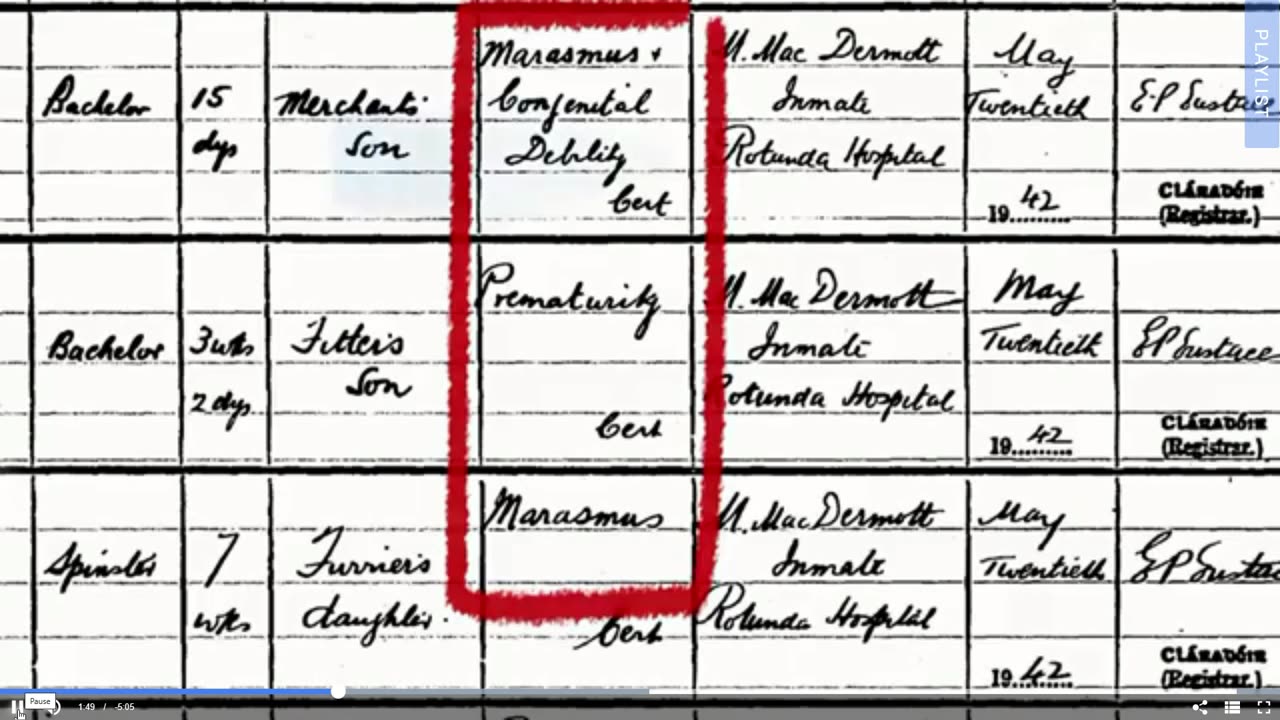 Marasmus +
Congenital
Debility
Cert
Bachelor
15
dys
Merchants
Son
M. Mac Dermott
Inmate
Rotunda Hospital
May
Twentieth
1942
E.P. Eustace
CLÁRADÓIR
(Registrar.)
Prematurity
Cert
Bachelor
3 wks
2 dys
Fitter's
Son
M. Mac Dermott
Inmate
Rotunda Hospital
May
Twentieth
1942
E P Eustace
CLÁRADÓIR
(Registrar.)
Marasmus
Cert
Spinster
7
wks
Furrier's
daughter
M. Mac Dermott
Inmate
Rotunda Hospital
May
Twentieth
1942
E P Eustace
CLÁRADÓIR
(Registrar.)
PLAYLIST
Pause
1:49 / -5:05